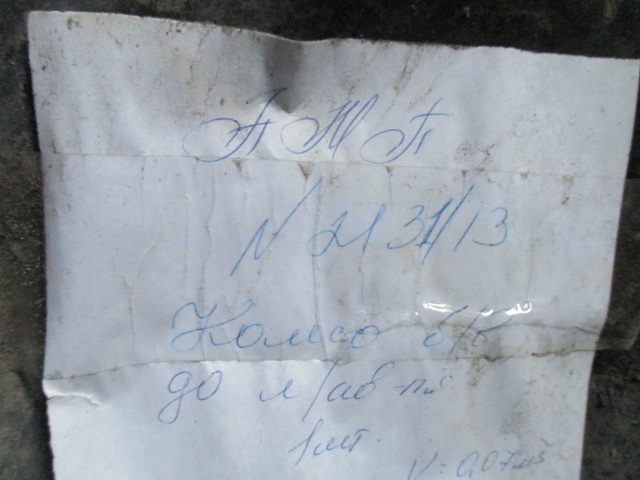 АМП
N 2131/13
Колесо б/б
до л/ав-ля
1шт.
V=0,07м3